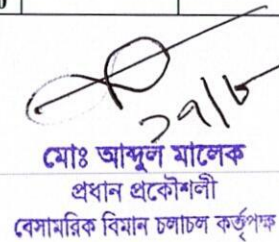 ২৭/৮
মোঃ আব্দুল মালেক
প্রধান প্রকৌশলী
বেসামরিক বিমান চলাচল কর্তৃপক্ষ